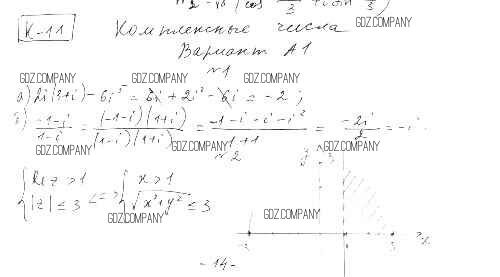 К-11
Комплексные числа
Вариант А1
№1
а) 2i(3+i) - 6i⁵ = 6i + 2i² - 6i = -2;
б) (-1-i)/(1-i) = ((-1-i)(1+i))/((1-i)(1+i)) = (-1-i-i-i²)/(1+1) = -2i/2 = -i.
№2
{ Re z > 1, |z| ≤ 3 <=> { x > 1, √(x²+y²) ≤ 3
y
3
-3 1 3 x
-14-
GDZ.COMPANY
GDZ.COMPANY
GDZ.COMPANY
GDZ.COMPANY
GDZ.COMPANY
GDZ.COMPANY
GDZ.COMPANY
GDZ.COMPANY
GDZ.COMPANY